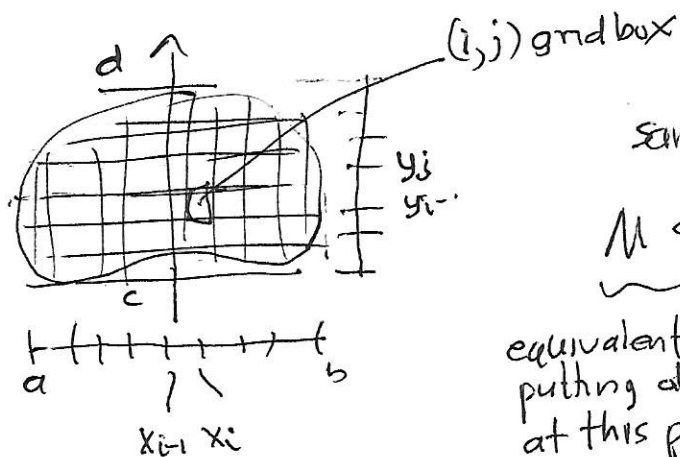 (i,j) gridbox
d
yj
yi-1
c
a
b
xi-1 xi
M
equivalent
putting
at this